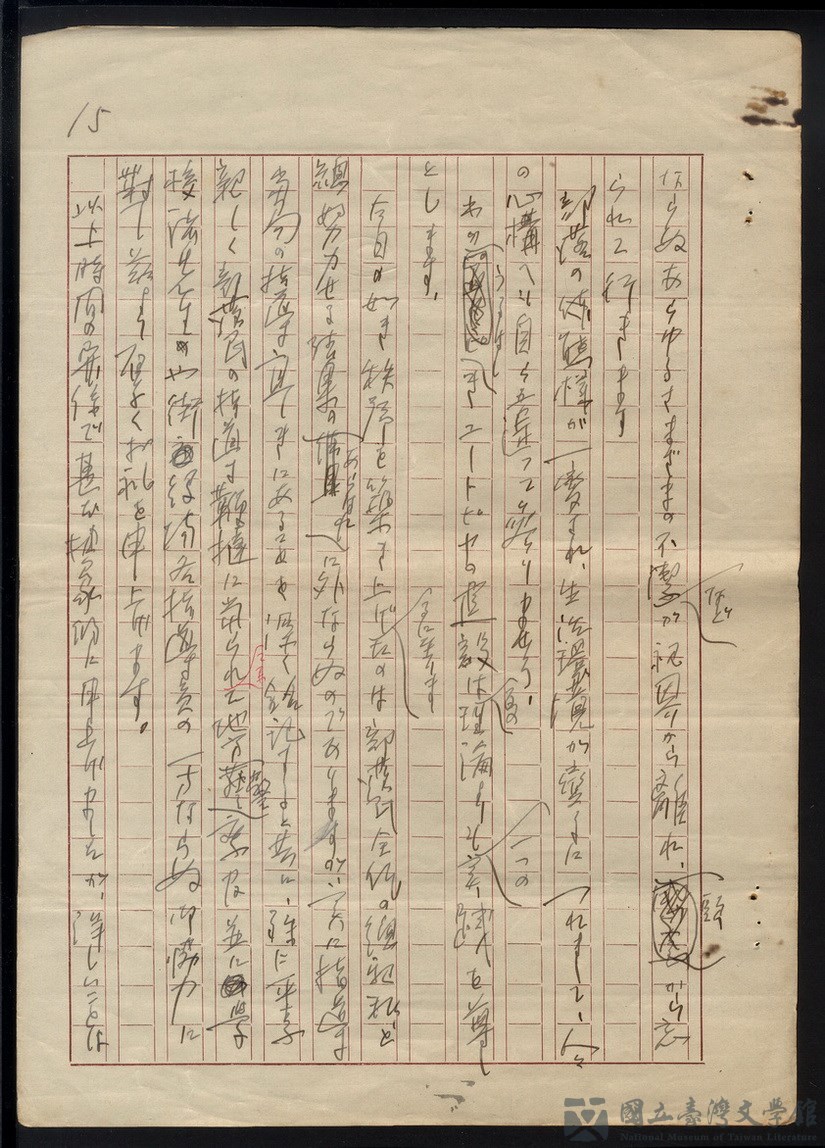 15
ならぬあらゆるさまざまの不潔が視界から離れ、から忘
など
られて行きます
部落の態様が一変され、生活環境が変るにつれまして、人々
の心構へも自ら違つて参りませう。
わがうるはしきユートピヤの建設は理論よりも実践を尊し
一つの
とします。
今日の如き秩序を築き上げたのは部落民全体の親和と
努力せる結果のあらはれに外ならぬのでありますが、一に指導
当局の指導宜しきにある事も銘記すると共に、特に平素
親しく部落民の指導に当られて地方警察及並に学
校諸先生や街役場各指導員の一方ならぬ御協力に
対し茲より厚くお礼を申上げます。
以上時間の関係で甚だ抽象的に申上げましたが、詳しいことは
國立臺灣文學館
National Museum of Taiwan Literature